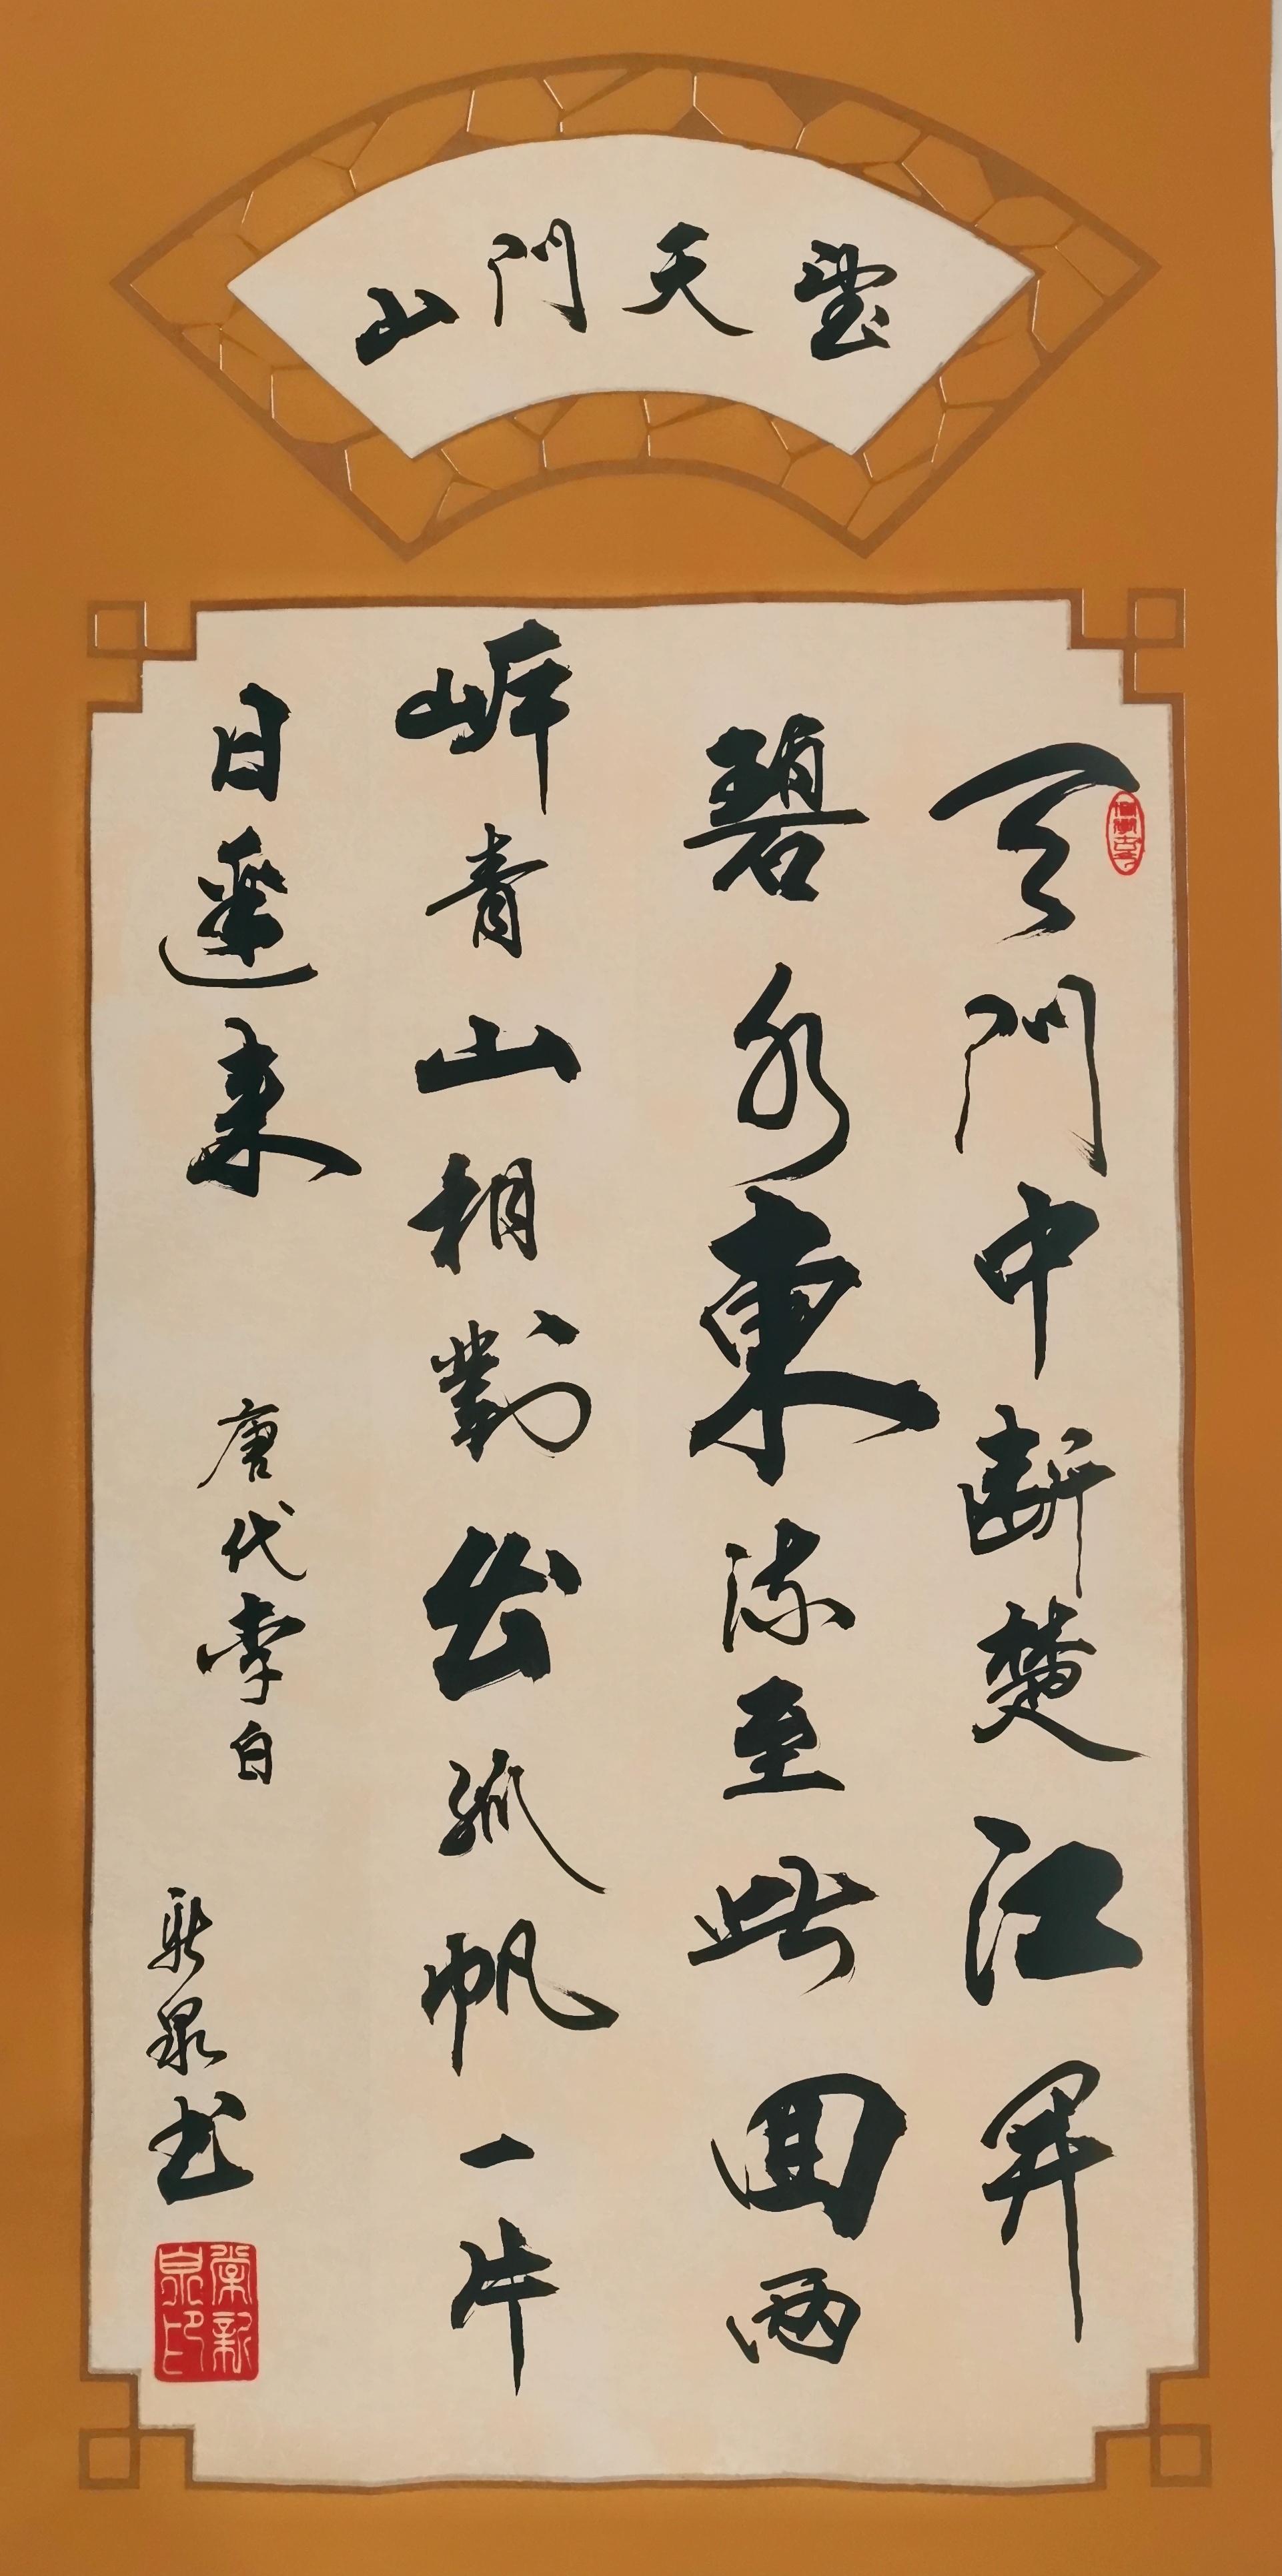 望天門山
天門中断楚江開
碧水東流至此回兩
岸青山相對出孤帆一片
日邊来
唐代李白
新泉书